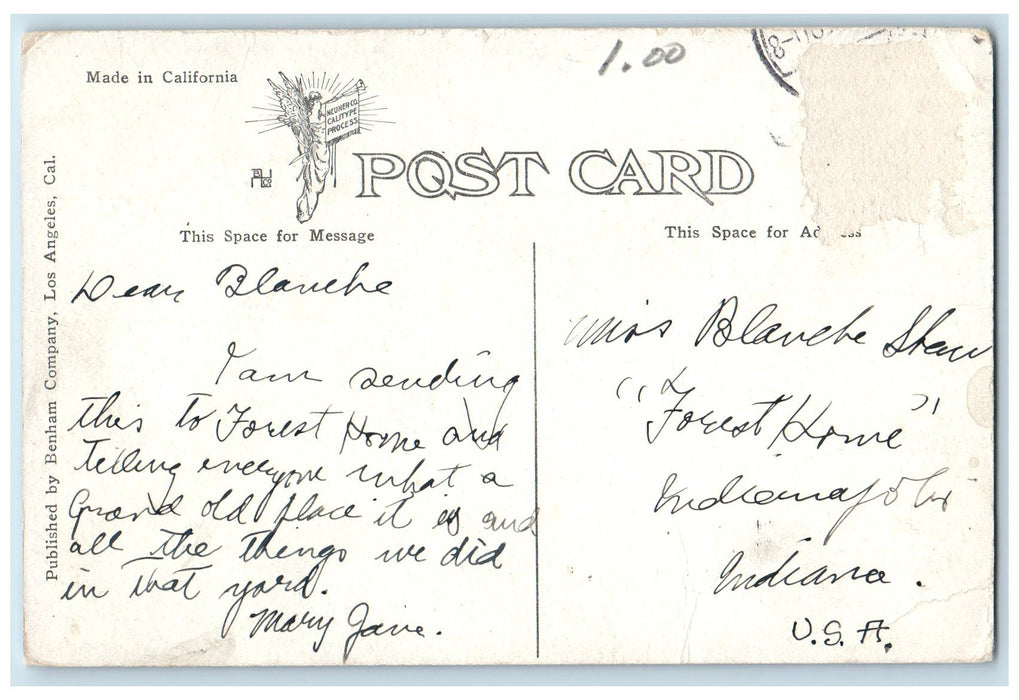 1.00
Made in California
NEUNER CO.
CALITYPE
PROCESS
POST CARD
This Space for Message
This Space for Ad ss
Published by Benham Company, Los Angeles, Cal.
Dear Blanche
I am sending
this to Forest Home and
telling everyone what a
Grand old place it is and
all the things we did
in that yard.
Mary Jane.
Miss Blanche Shaw
"Forest Home"
Indianapolis
Indiana.
U.S.A.